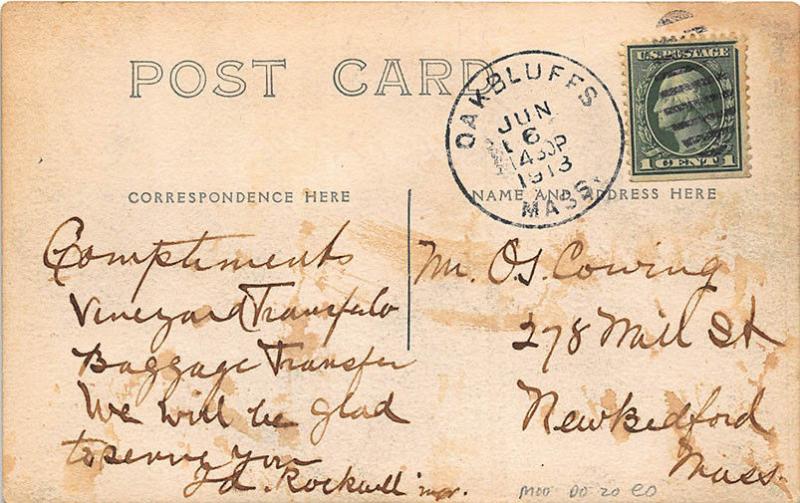 POST CARD
OAK BLUFFS
JUN
6
430P
1913
MASS.
U.S. POSTAGE
1 CENT 1
CORRESPONDENCE HERE
NAME AND ADDRESS HERE
Compliments
Vineyard Transfer Co
Baggage Transfer
We will be glad
to serve you
Ed. Rockwell mgr.
Mr. O.S. Cowing
278 Mill St
New Bedford
Mass.